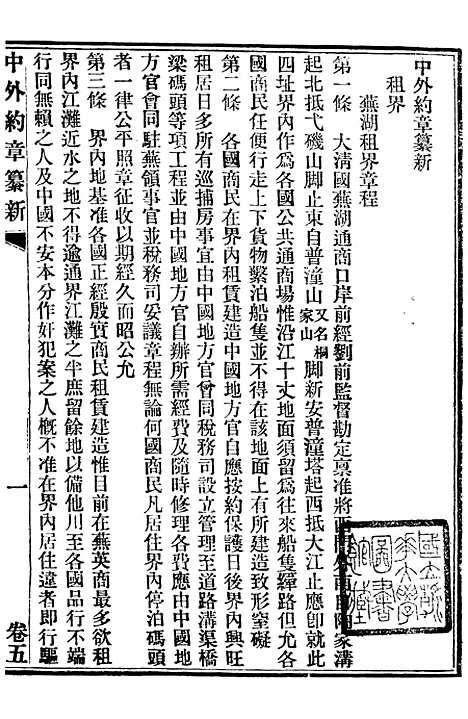 中外約章纂新
租界
蕪湖租界章程
第一條　大清國蕪湖通商口岸前經劉前監督勘定稟准將西門外南自陶家溝
起北抵弋磯山脚止東自普潼山又名桐家山脚新安普潼塔起西抵大江止應卽就此
四址界內作爲各國公共通商場惟沿江十丈地面須留爲往來船隻縴路但凡各
國商民任便行走上下貨物繫泊船隻並不得在該地面上有所建造致形窒礙
第二條　各國商民在界內租賃建造中國地方官自應按約保護日後界內興旺
租居日多所有巡捕房事宜由中國地方官會同稅務司設立管理至道路溝渠橋
梁碼頭等項工程並由中國地方官自辦所需經費及隨時修理各費應由中國地
方官會同駐蕪領事官並稅務司妥議章程無論何國商民凡居住界內停泊碼頭
者一律公平照章征收以期經久而昭公允
第三條　界內地基准各國正經殷實商民租賃建造惟目前在蕪英商最多欲租
界內江灘近水之地不得逾通界江灘之半庶留餘地以備他用至各國品行不端
行同無賴之人及中國不安本分作奸犯案之人概不准在界內居住違者卽行驅
中外約章纂新
一
卷五